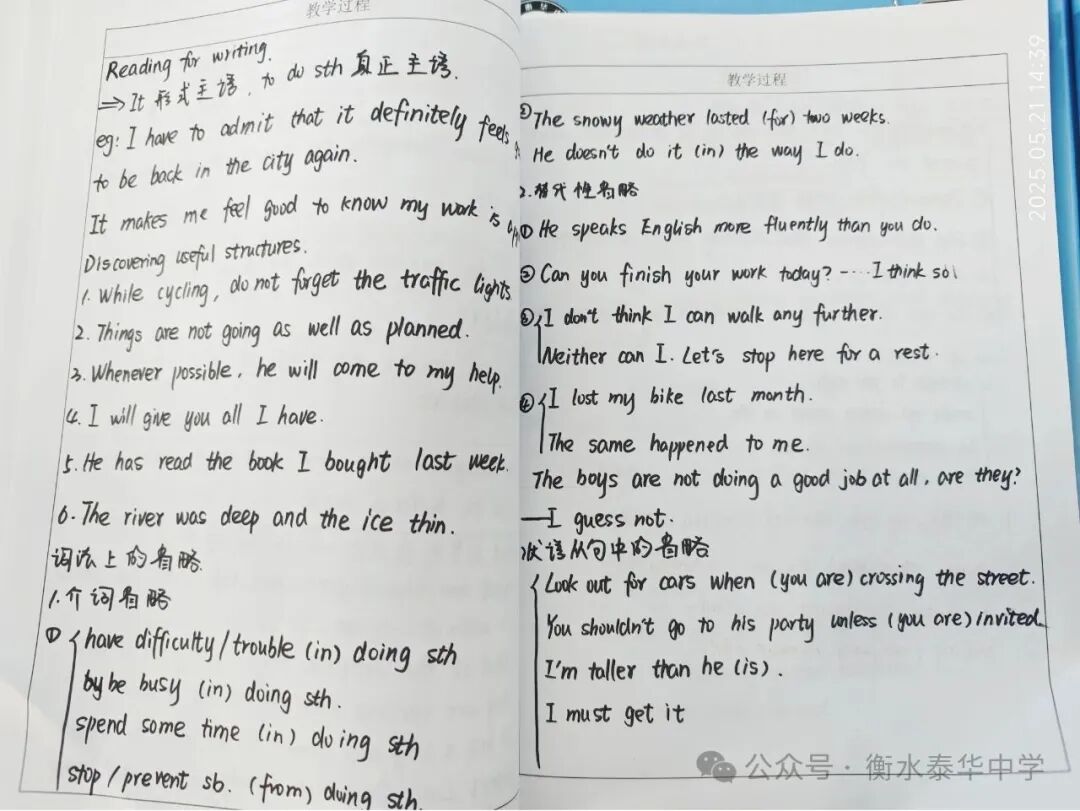 教学过程
Reading for writing.
⇒It 形式主语, to do sth 真正主语.
eg: I have to admit that it definitely feels
to be back in the city again.
It makes me feel good to know my work is
Discovering useful structures.
1. While cycling, do not forget the traffic lights
2. Things are not going as well as planned.
3. Whenever possible, he will come to my help.
4. I will give you all I have.
5. He has read the book I bought last week.
6. The river was deep and the ice thin.
词法上的省略.
1. 介词省略
① have difficulty/trouble (in) doing sth
by be busy (in) doing sth.
spend some time (in) doing sth
stop/prevent sb. (from) doing sth.
教学过程
② The snowy weather lasted (for) two weeks.
He doesn't do it (in) the way I do.
2. 替代性省略
① He speaks English more fluently than you do.
② Can you finish your work today? -····I think so!
③ I don't think I can walk any further.
Neither can I. Let's stop here for a rest.
④ I lost my bike last month.
The same happened to me.
The boys are not doing a good job at all, are they?
—I guess not.
状语从句中的省略
Look out for cars when (you are) crossing the street.
You shouldn't go to his party unless (you are) invited.
I'm taller than he (is).
I must get it
2025.05.21 14:39
公众号·衡水泰华中学